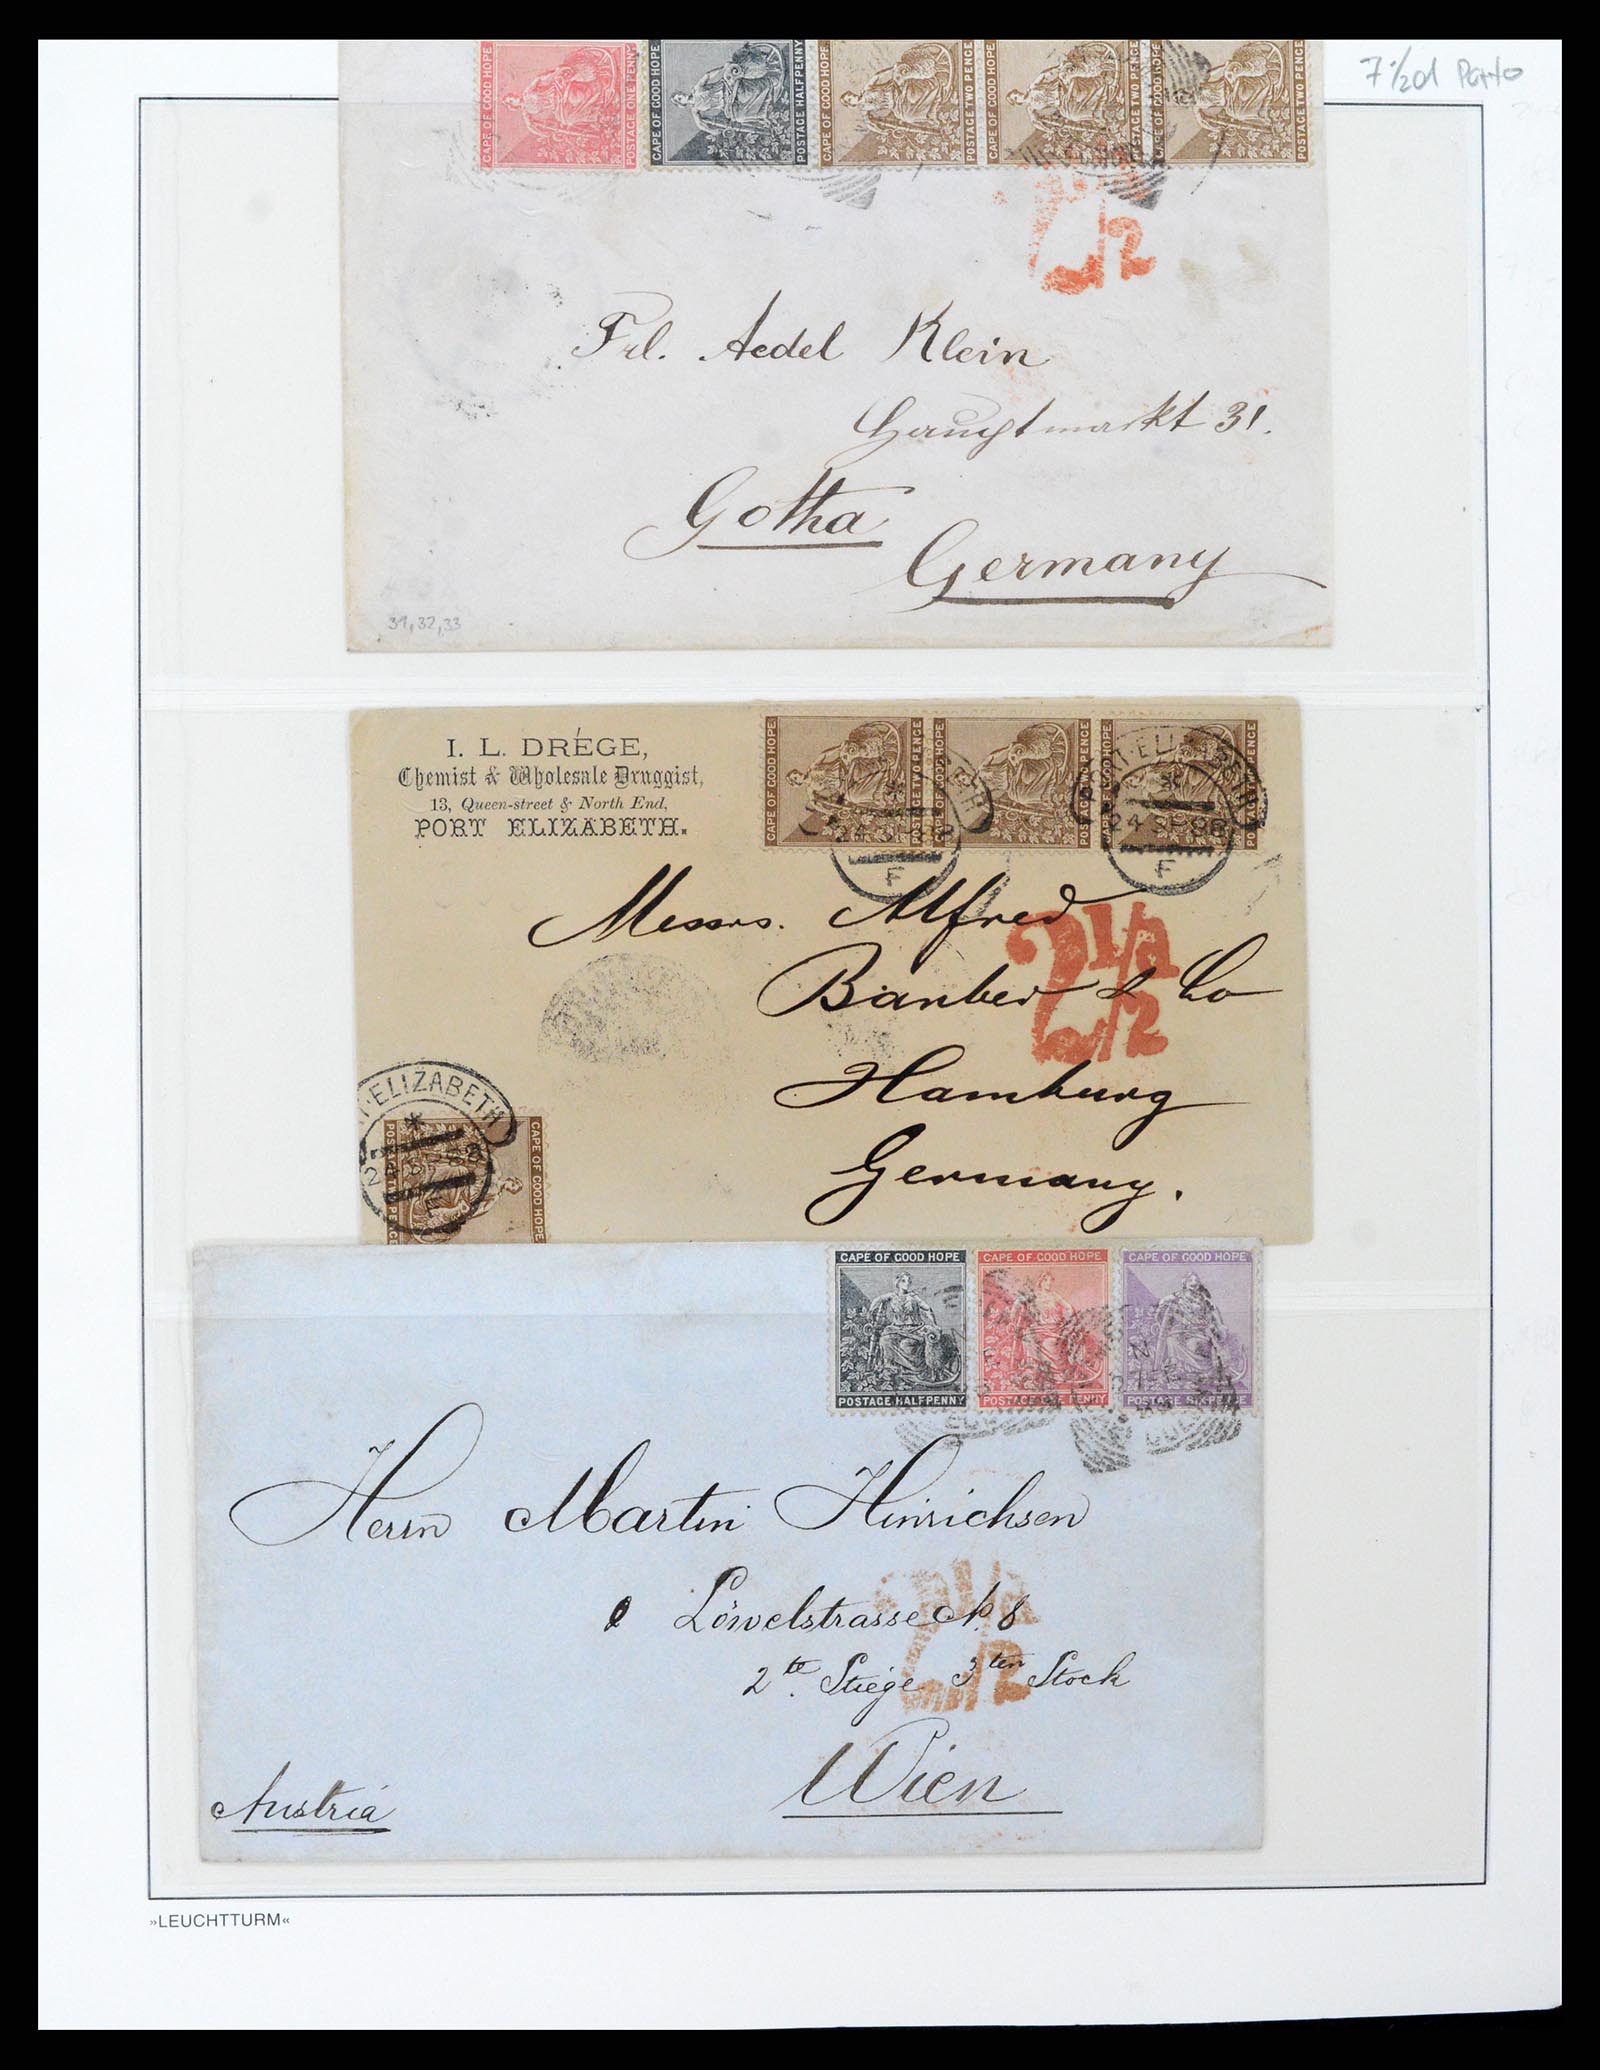 7½d Porto
CAPE OF GOOD HOPE
POSTAGE ONE PENNY
CAPE OF GOOD HOPE
POSTAGE HALFPENNY
CAPE OF GOOD HOPE
POSTAGE TWO PENCE
CAPE OF GOOD HOPE
POSTAGE TWO PENCE
CAPE OF GOOD HOPE
POSTAGE TWO PENCE
1/2
Frl. Aedel Klein
Hauptmarkt 31.
Gotha
Germany
31, 32, 33
I. L. DRÉGE,
Chemist & Wholesale Druggist,
13, Queen-street & North End,
PORT ELIZABETH.
CAPE OF GOOD HOPE
POSTAGE TWO PENCE
CAPE OF GOOD HOPE
POSTAGE TWO PENCE
CAPE OF GOOD HOPE
POSTAGE TWO PENCE
24 SP 88
F
PORT·ELIZABETH
24 SP 88
F
Messrs. Alfred
Barber & Co
Hamburg
Germany.
2 1/d
1/2
·ELIZABETH
24 SP 88
F
CAPE OF GOOD HOPE
CAPE OF GOOD HOPE
POSTAGE HALFPENNY
CAPE OF GOOD HOPE
POSTAGE ONE PENNY
CAPE OF GOOD HOPE
POSTAGE SIXPENCE
Herrn Martin Hinrichsen
Löwelstrasse No. 8
2te. Stiege 3ten Stock
Wien
Austria
1/2
»LEUCHTTURM«